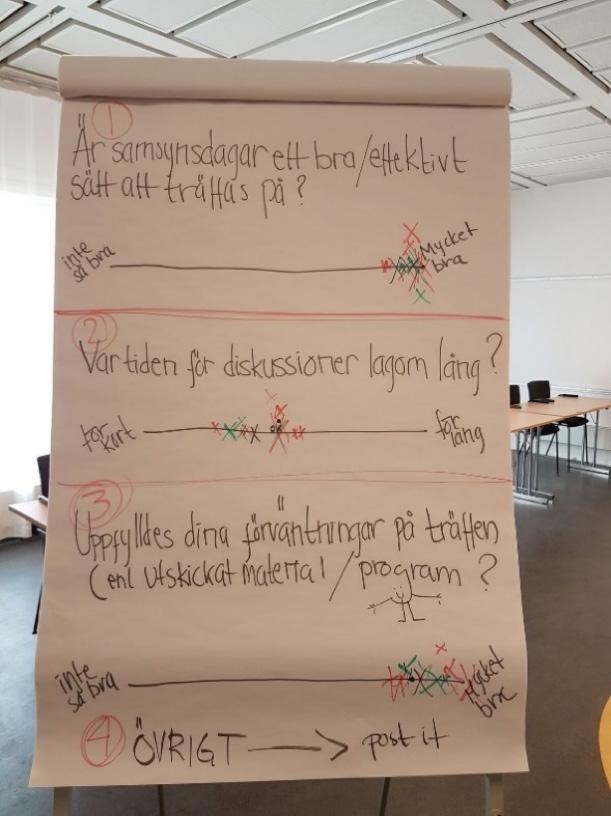 1
Är samsynsdagar ett bra/effektivt
sätt att träffas på?
inte så bra
Mycket bra
2
Var tiden för diskussioner lagom lång?
för kort
för lång
3
Uppfylldes dina förväntningar på träffen
(enl utskickat material/program?
inte så bra
Mycket bra
4 ÖVRIGT → post it